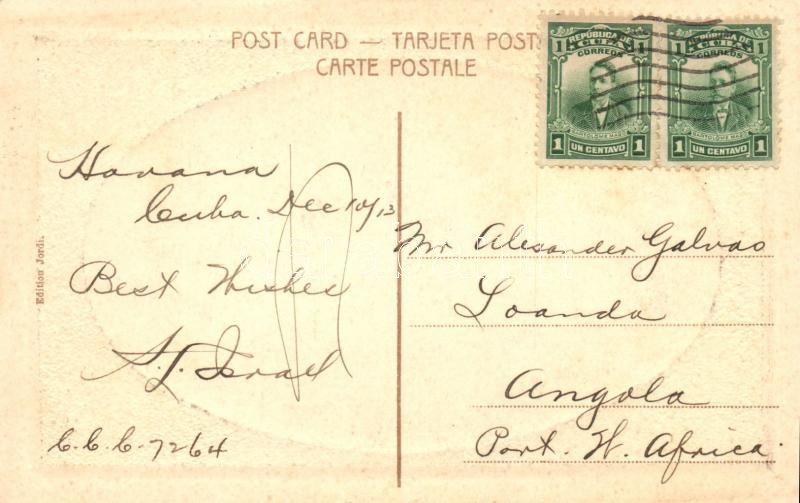 POST CARD — TARJETA POST
CARTE POSTALE
REPÚBLICA DE
1 CUBA 1
CORREOS
BARTOLOMÉ MASÓ
1 UN CENTAVO 1
REPÚBLICA DE
1 CUBA 1
CORREOS
BARTOLOMÉ MASÓ
1 UN CENTAVO 1
Havana
Cuba. Dec 10/13
Best Wishes
Israel
C.C.C. 7264
Edition Jordi.
Mr Alexander Galvao
Loanda
Angola
Port. W. Africa.